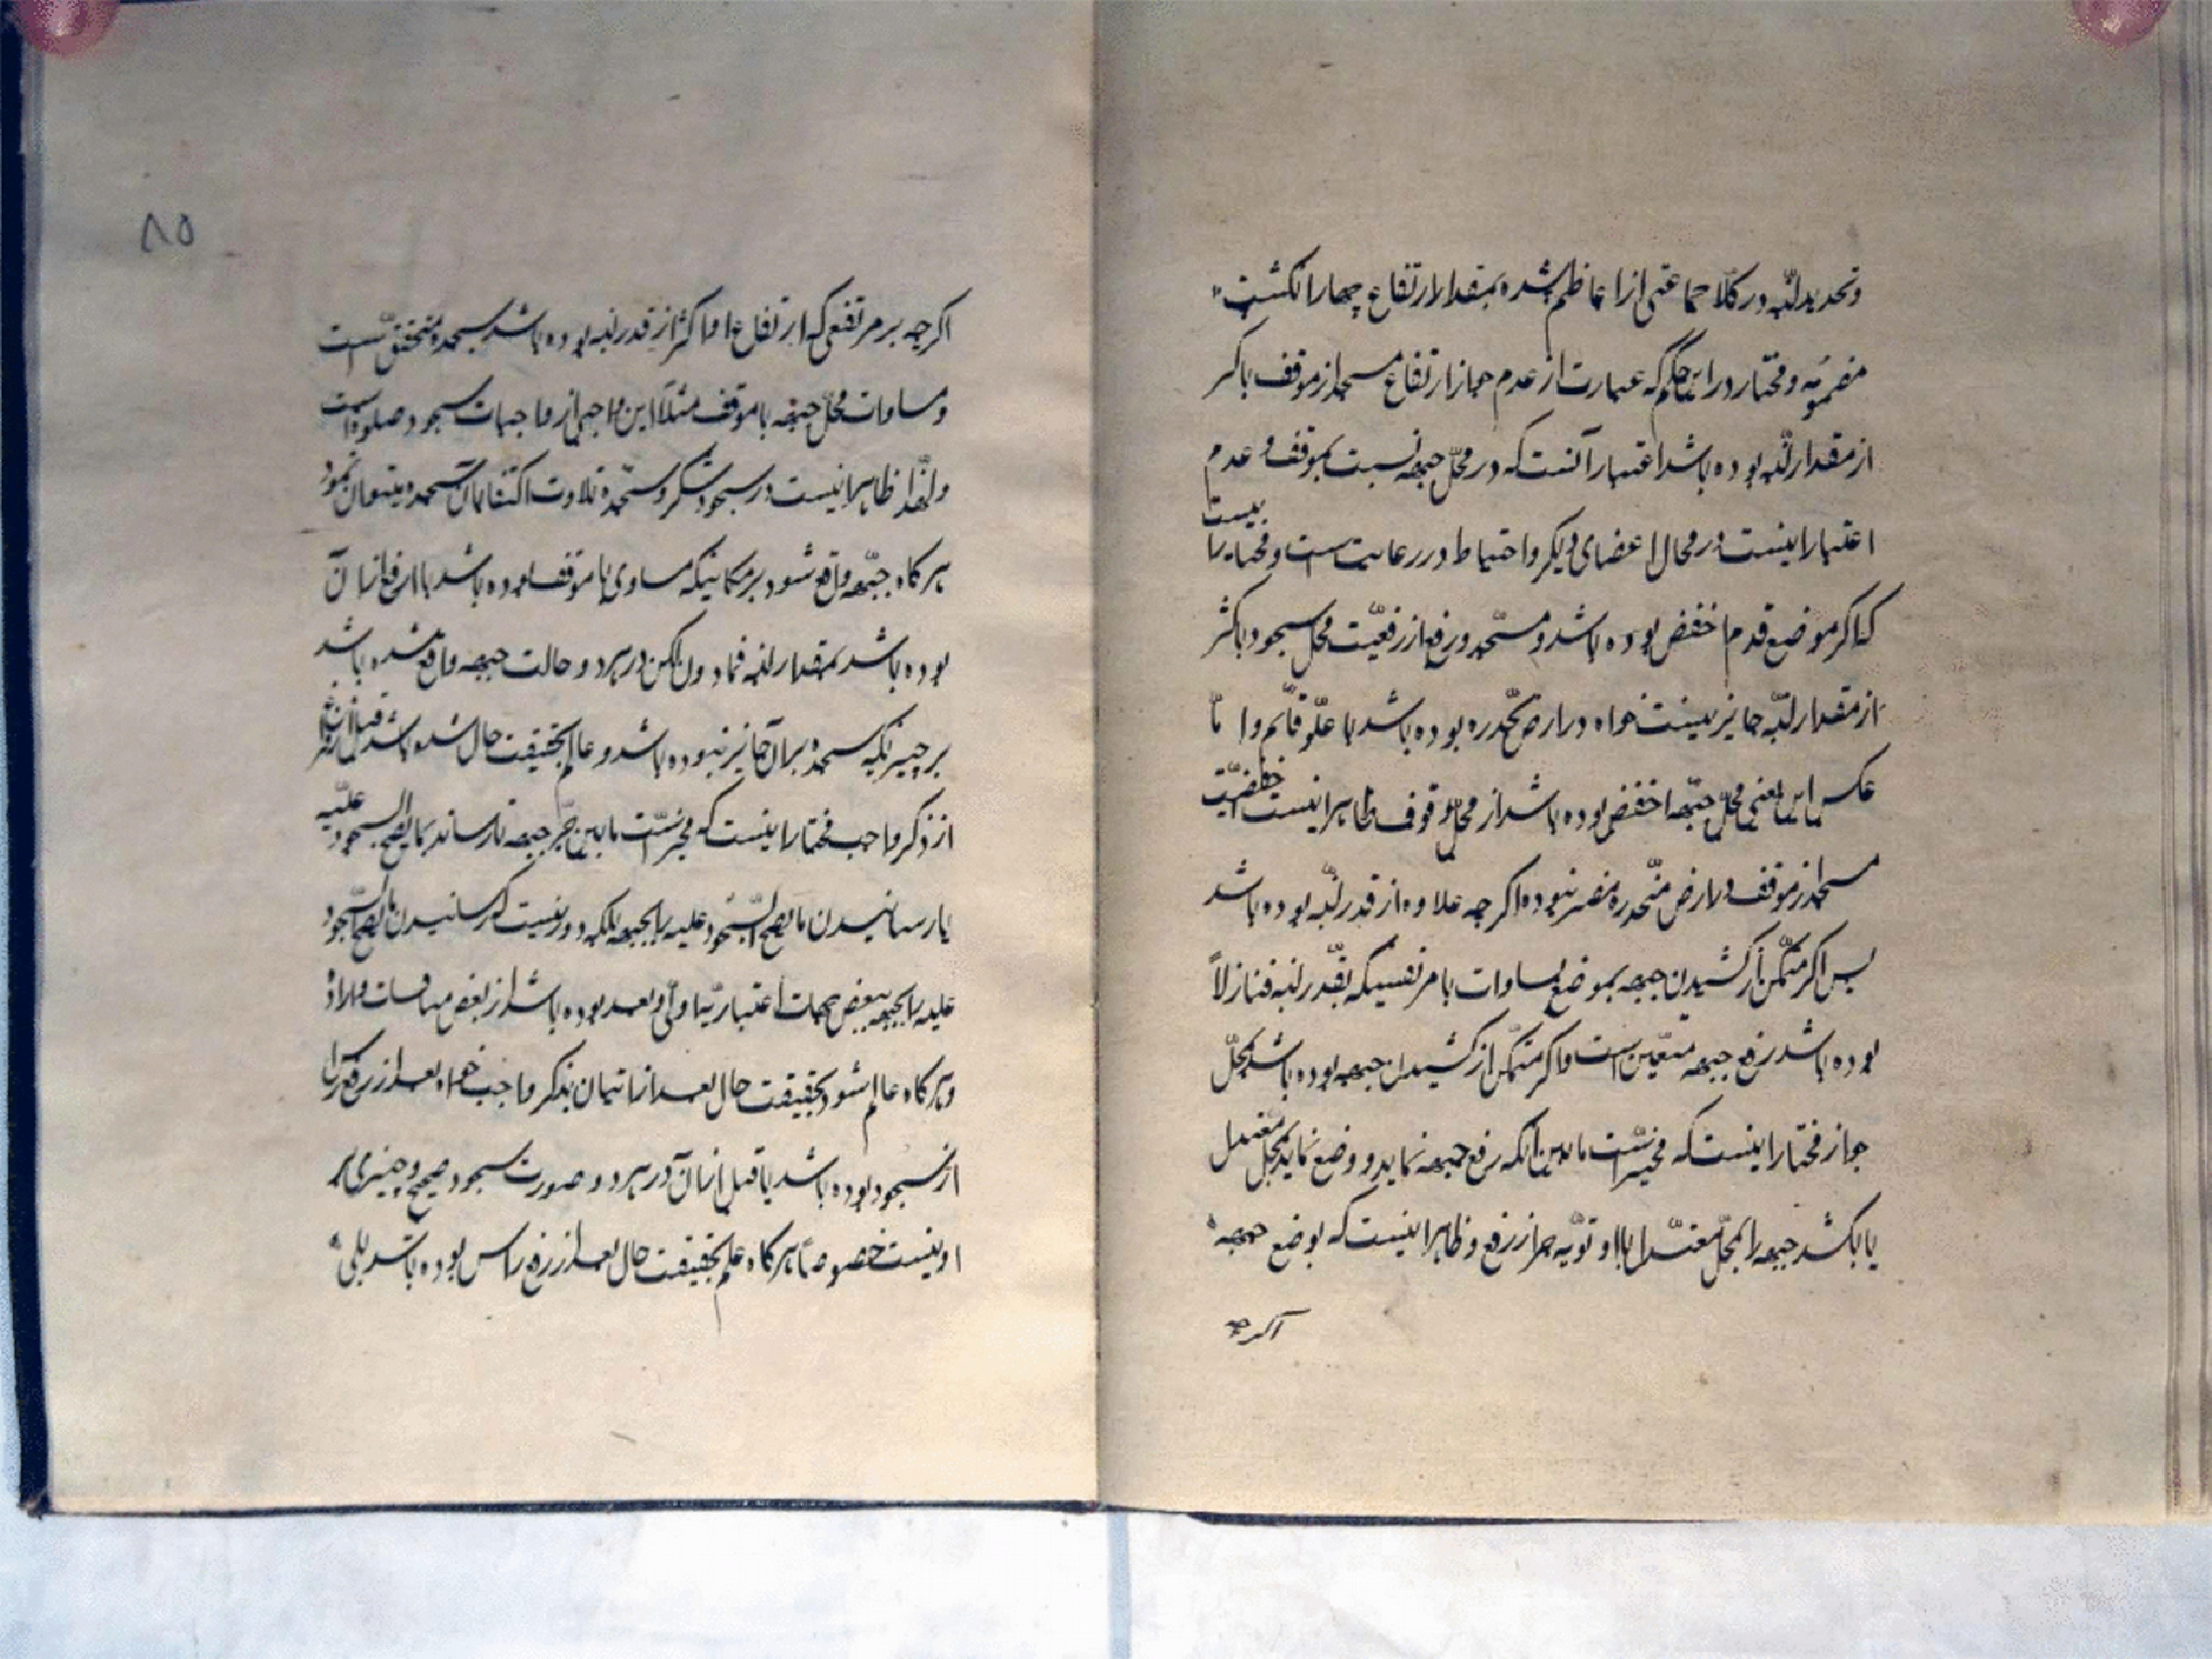 وتحدید لبنه در کلام جماعتی از اعاظم شده بمقدار ارتفاع چهار انکشت
مضمومه و مختار در این حکم که عبارت از عدم جواز ارتفاع مسجد از موقف باکثر
از مقدار لبنه بوده باشد اعتبار آنست که در محلّ جبهه نسبت بموقف و عدم
اعتبار اینست در محال اعضای دیکر و احتیاط در رعایت است و مختار
که اکر موضع قدم اخفض بوده باشد و مسجد ارفع از محل سجود باکثر
از مقدار لبنه جایز نیست خواه در ارض منحدره بوده باشد یا علوّ قائم و امّا
عکس این یعنی محلّ جبهه اخفض بوده باشد از محلّ وقوف ظاهر اینست اخفضیّت
مسجد از موقف در ارض منحدره مضر نبوده اکرچه علاوه از قدر لبنه بوده باشد
پس اکر متمکّن از کشیدن جبهه بموضع مساوات یا مرتفعیکه بقدر لبنه فنازلاً
بوده باشد رفع جبهه متعیّن است و اکر متمکّن از کشیدن جبهه بوده باشد بمحلّ
جواز مختار اینست که مخیّر است مابین آنکه رفع جبهه نماید و وضع نماید بمحل معتدل
یا بکشد جبهه را بمحلّ معتدل با اولویّه جر از رفع و ظاهر اینست که بوضع جبهه
اکرچه
۸۵
اکرچه بر مرتفعی که ارتفاع او اکثر از قدر لبنه بوده باشد سجده متحقق است
و مساوات محلّ جبهه با موقف مثلاً این واجبی از واجبات سجود صلوة است
ولهذا ظاهر اینست در سجود شکر و سجده تلاوت اکتفا بان سجده میتوان نمود
هر کاه جبهه واقع شود بر مکانیکه مساوی با موقف بوده باشد یا ارفع از آن
بوده باشد بمقدار لبنه فمادون لکن در هر دو حالت جبهه واقع شده باشد
بر چیزیکه سجده بر آن جایز نبوده باشد و عالم بحقیقت حال شده باشد قبل
از ذکر واجب مختار اینست که مخیّر است مابین جرّ جبهه تا رساند بما یصح السجود علیه
یا رسانیدن ما یصح السّجود علیه را بجبهه بلکه دور نیست که رسانیدن ما یصح السّجود
علیه را بجبهه ببعض جهات اعتباریّه اولی و بعد بوده باشد از بعض
و هر کاه عالم شود بحقیقت حال بعد از اتیان بذکر واجب خواه بعد از رفع راس
از سجود بوده باشد یا قبل از آن در هر دو صورت سجود صحیح و چیزی بر
او نیست خصوصاً هر کاه علم بحقیقت حال بعد از رفع راس بوده باشد بلی